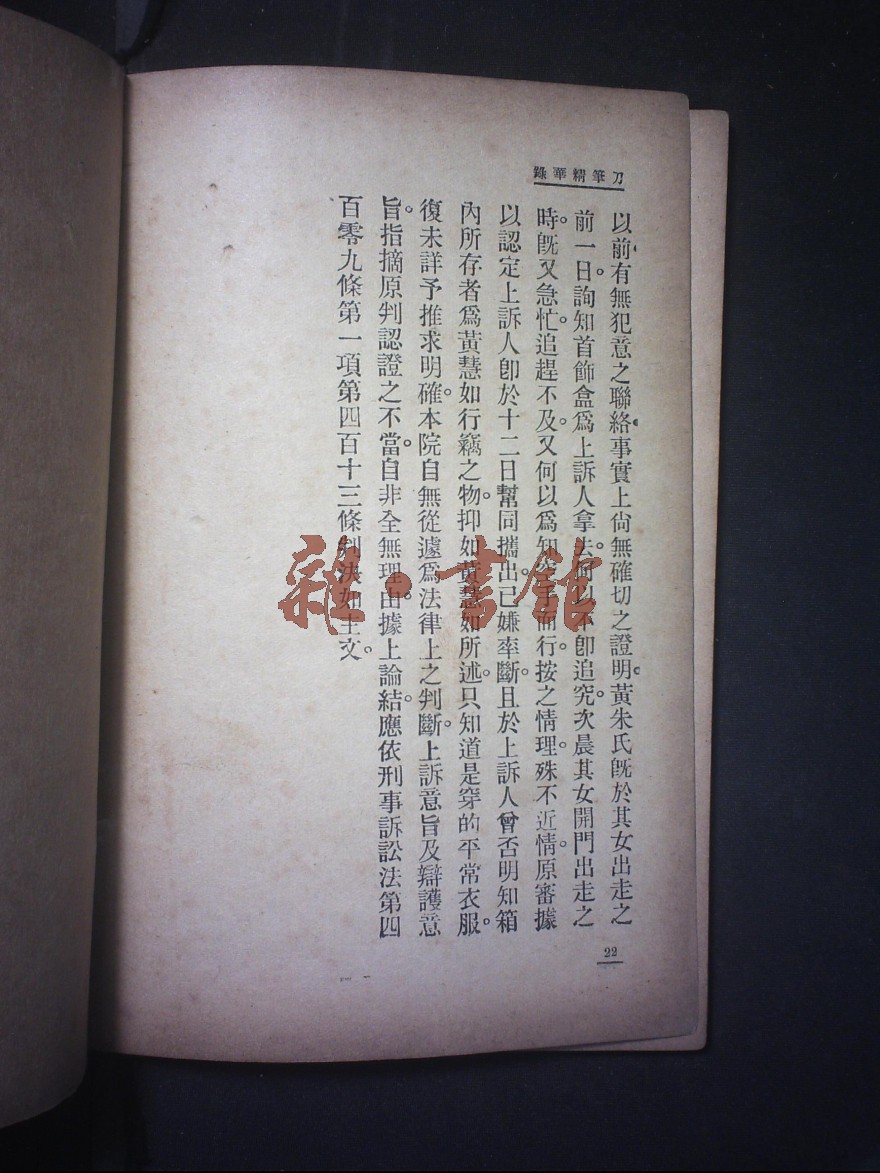 刀筆精華錄
以前有無犯意之聯絡事實上尙無確切之證明。黃朱氏旣於其女出走之
前一日。詢知首飾盒爲上訴人拿去。何以不卽追究。次晨其女開門出走之
時。旣又急忙。追趕不及。又何以爲知 而行。按之情理。殊不近情。原審據
以認定上訴人卽於十二日幫同攜出。已嫌率斷。且於上訴人曾否明知箱
內所存者爲黃慧如行竊之物。抑如黃慧如所述。只知道是穿的平常衣服。
復未詳予推求明確。本院自無從遽爲法律上之判斷。上訴意旨及辯護意
旨。指摘原判認證之不當。自非全無理由。據上論結。應依刑事訴訟法第四
百零九條第一項第四百十三條判決如主文。
22
雜·書館